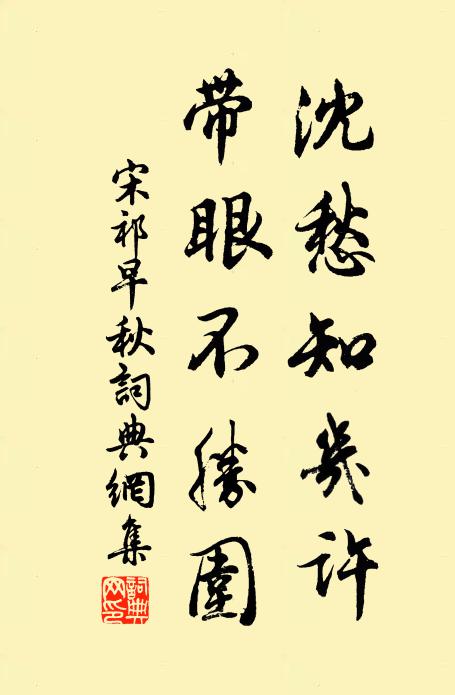 沈愁知幾許
帶眼不勝圍
宋祁早秋詞典網集
詞典網印